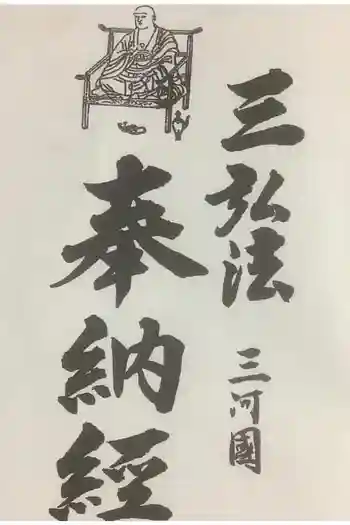 三弘法
三河國
奉納經